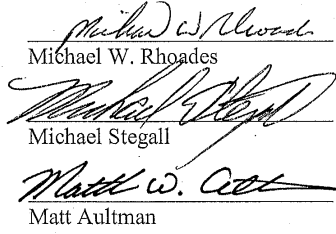 Michael W Rhoades
Michael W. Rhoades
Michael Stegall
Michael Stegall
Matt W. Ault
Matt Aultman